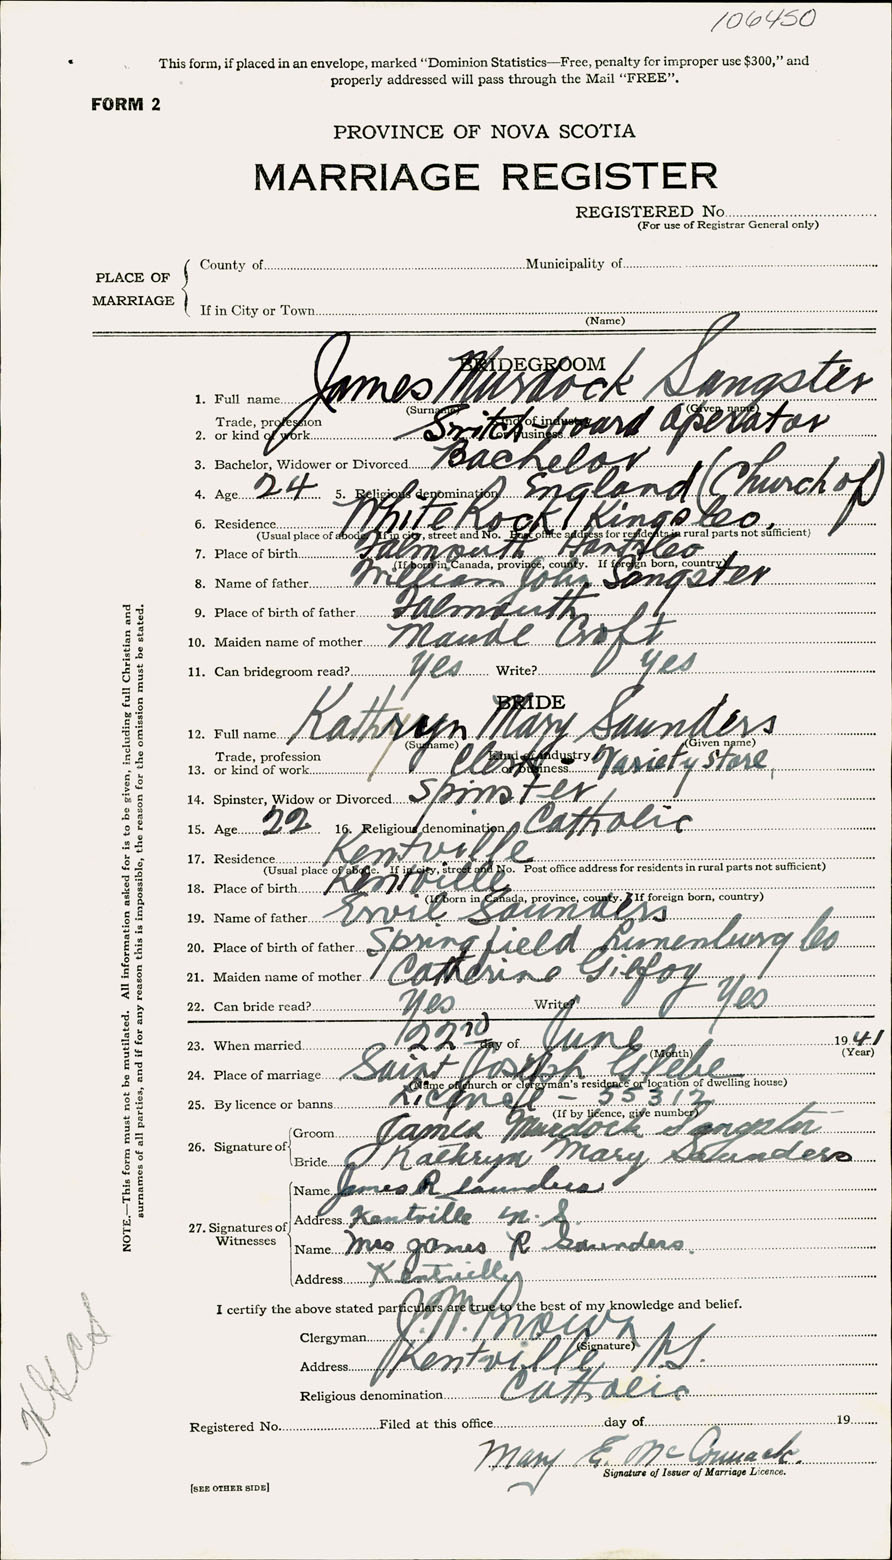 106450
This form, if placed in an envelope, marked “Dominion Statistics—Free, penalty for improper use $300,” and
properly addressed will pass through the Mail “FREE”.
FORM 2
PROVINCE OF NOVA SCOTIA
MARRIAGE REGISTER
REGISTERED No.
(For use of Registrar General only)
PLACE OF MARRIAGE
County of Municipality of
If in City or Town
(Name)
BRIDEGROOM
1. Full name James Murdock Sangster
(Surname) (Given name)
2. Trade, profession or kind of work Kind of industry or business Switch-board Operator
3. Bachelor, Widower or Divorced Bachelor
4. Age 24 5. Religious denomination England (Church of)
6. Residence White Rock, Kings Co.
(Usual place of abode. If in city, street and No. Post office address for residents in rural parts not sufficient)
7. Place of birth Falmouth Hants Co
(If born in Canada, province, county. If foreign born, country)
8. Name of father William John Sangster
9. Place of birth of father Falmouth
10. Maiden name of mother Maude Croft
11. Can bridegroom read? Yes Write? Yes
BRIDE
12. Full name Kathryn Mary Saunders
(Surname) (Given name)
13. Trade, profession or kind of work Kind of industry or business Clerk - Variety Store
14. Spinster, Widow or Divorced Spinster
15. Age 22 16. Religious denomination Catholic
17. Residence Kentville
(Usual place of abode. If in city, street and No. Post office address for residents in rural parts not sufficient)
18. Place of birth Kentville
(If born in Canada, province, county. If foreign born, country)
19. Name of father Ervil Saunders
20. Place of birth of father Springfield Lunenburg Co
21. Maiden name of mother Catherine Gilfoy
22. Can bride read? Yes Write? Yes
23. When married 22nd day of June 1941
(Month) (Year)
24. Place of marriage Saint Joseph Glebe
(Name of church or clergyman’s residence or location of dwelling house)
25. By licence or banns Licence - 55312
(If by licence, give number)
26. Signature of Groom James Murdock Sangster
Bride Kathryn Mary Saunders
27. Signatures of Witnesses
Name James R Saunders
Address Kentville N.S.
Name Mrs James R Saunders.
Address Kentville
I certify the above stated particulars are true to the best of my knowledge and belief.
Clergyman J.M. Brown
(Signature)
Address Kentville N.S.
Religious denomination Catholic
Registered No. Filed at this office day of 19
Mary E. McCormack.
Signature of Issuer of Marriage Licence.
[SEE OTHER SIDE]
NOTE.—This form must not be mutilated. All information asked for is to be given, including full Christian and
surnames of all parties, and if for any reason this is impossible, the reason for the omission must be stated.